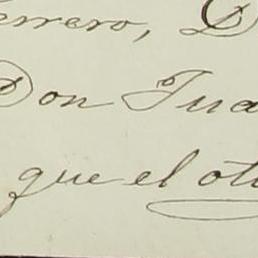 errero, D
Don Jua
que el oto